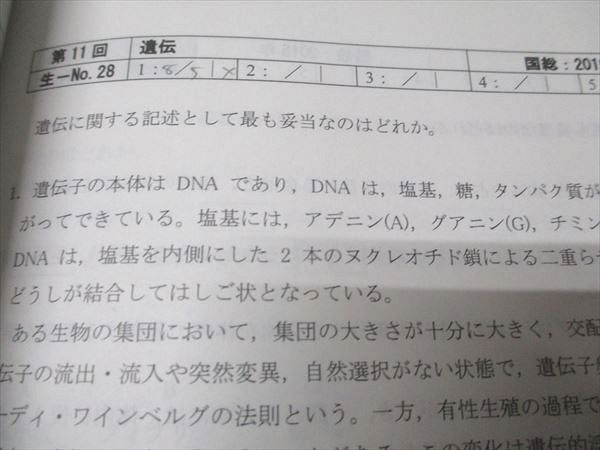 第11回 遺伝 国総:201
生−No.28 1:8/5 × 2: / 3: / 4: / 5
遺伝に関する記述として最も妥当なのはどれか。
1. 遺伝子の本体は DNA であり,DNA は,塩基,糖,タンパク質が
がってできている。塩基には,アデニン(A),グアニン(G),チミン
DNA は,塩基を内側にした 2 本のヌクレオチド鎖による二重ら
どうしが結合してはしご状となっている。
ある生物の集団において,集団の大きさが十分に大きく,交配
伝子の流出・流入や突然変異,自然選択がない状態で,遺伝子
ーディ・ワインベルグの法則という。一方,有性生殖の過程で
この変化は遺伝的浮